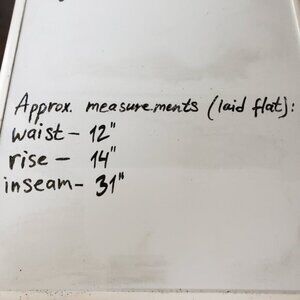 Approx. measurements (laid flat):
waist - 12"
rise - 14"
inseam - 31"